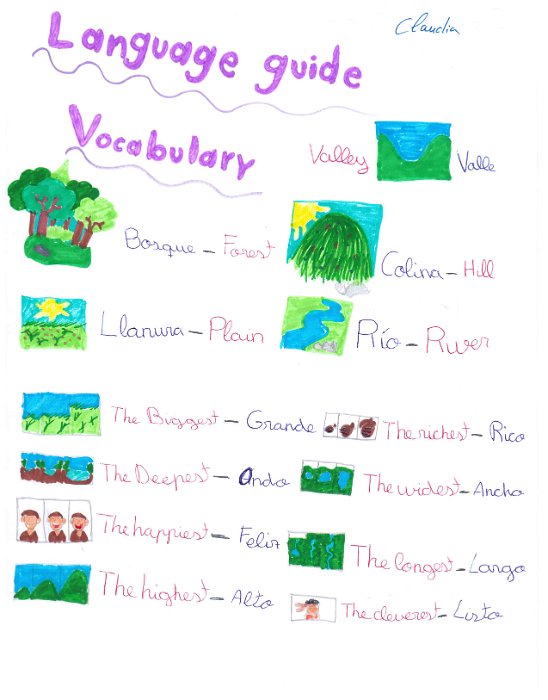 Claudia
Language guide
Vocabulary
Valley Valle
Bosque - Forest
Colina - Hill
Llanura - Plain
Río - River
The Biggest - Grande
The richest - Rico
The Deepest - Ondo
The widest - Ancho
The happiest - Feliz
The longest - Largo
The highest - Alto
The cleverest - Listo